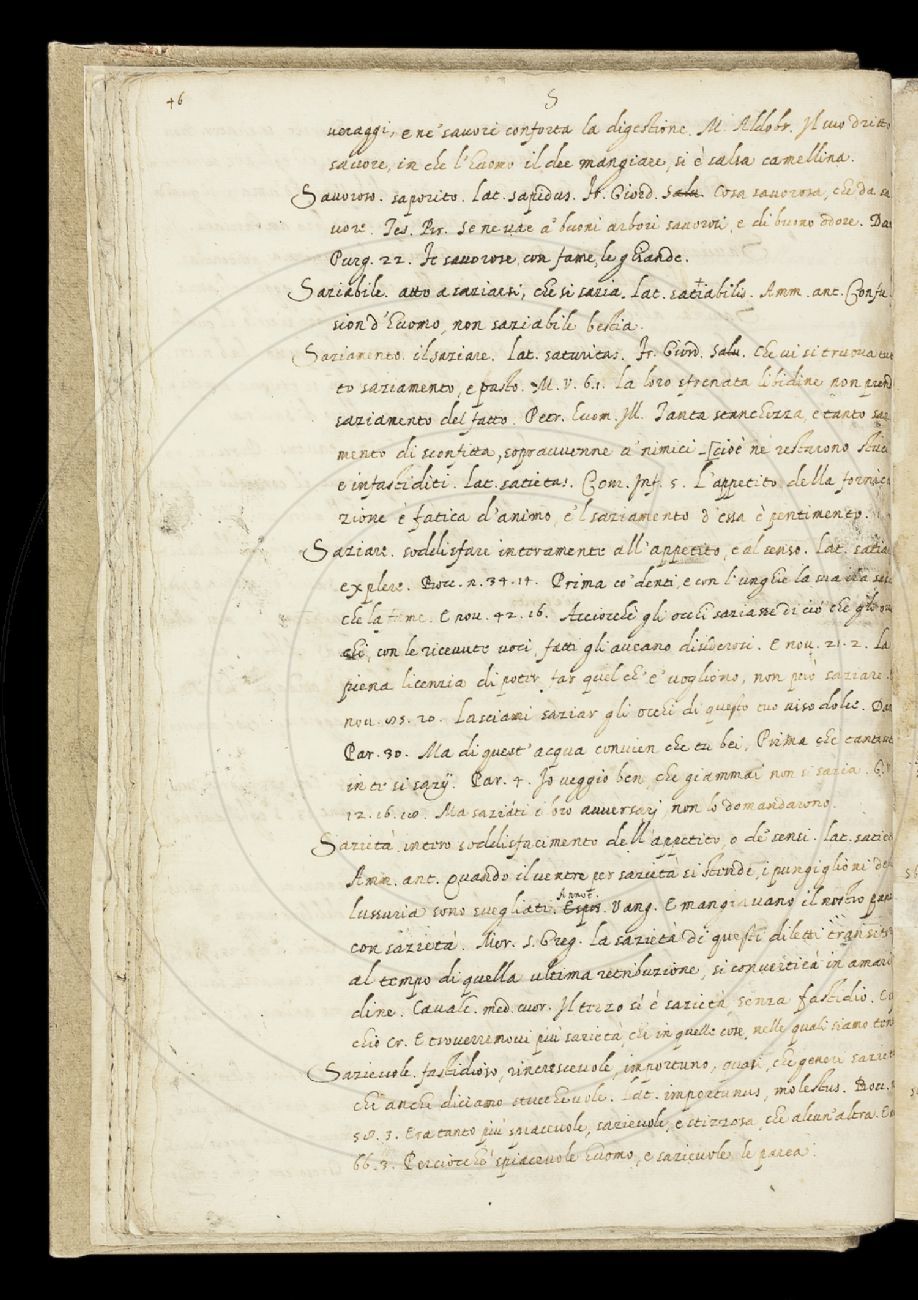 46
S
ueraggi, e ne' sauori conforta la digestione. M. Aldobr. Il suo dritto
sauore, in che l'huomo il dee mangiare, si è salsa camellina.
Sauoroso. saporito. Lat. sapidus. Fr. Giord. Salu. Cosa sauorosa, che da sa
uore. Tes. Br. Se ne uae a' buoni arbori sauorosi, e di buono odore. Dan
Purg. 22. Fe sauorose con fame, le ghiande.
Saziabile. atto a saziarsi, che si sazia. Lat. satiabilis. Amm. ant. Confu
sion d'huomo, non saziabile bestia.
Saziamento. il saziare. Lat. saturitas. Fr. Giord. Salu. Che ui si truoua tut
to saziamento, e pasto. M. V. 6.1. La loro sfrenata libidine non prend
saziamento del fatto. Petr. huom. Ill. Tanta stanchezza, e tanto saz
mento di sconfitta, soprauuenne a' nimici [cioè ne restarono stuc
e infastiditi. Lat. satietas. Com. Inf. 5. L'appetito della fornica
zione è fatica d'animo, e 'l saziamento d'essa è pentimento.
Saziare. soddisfare interamente all'appetito, e al senso. Lat. satia
explere. Bocc. n. 34.14. Prima co' denti, e con l'unghie la sua ira saz
che la fame. E nou. 42.16. Acciocchè gli occhi saziasse di ciò che gli ore
chi, con le riceuute uoci, fatti gli aueano disiderosi. E nou. 21.2. La
piena licenzia di poter far quel ch'e' uogliono, non può saziare.
nou. 85.20. Lasciami saziar gli occhi di questo tuo uiso dolce. Dan
Par. 30. Ma di quest' acqua conuien che tu bei, Prima che tanta set
in te si sazij. Par. 4. Io ueggio ben, che giammai non si sazia. G. V.
12.16.10. Ma saziati i loro auuersarj, non lo domandarono.
Sazietà. intero soddisfacimento dell'appetito, o de' sensi. Lat. satie
Amm. ant. Quando il uentre per sazietà si stende, i pungiglioni de
lussuria sono suegliati. Espos. Annot. Vang. E mangiauano il nostro pane
con sazietà. Mor. S. Greg. La sazietà di questi diletti transito
al tempo di quella ultima retribuzione, si conuertirà in amari
dine. Caualc. med. cuor. Il terzo si è sazietà senza fastidio. Co
chio Cr. E trouerremoui più sazietà, che in quelle cose, nelle quali siamo ten
Sazieuole. fastidioso, rincresceuole, importuno, quasi, che generi saziet
che anche diciamo stuccheuole. Lat. importunus, molestus. Bocc.
58.3. Era tanto più spiaceuole, sazieuole, e stizzosa, che alcun'altra. E
66.3. Perciocchè spiaceuole huomo, e sazieuole le parea.